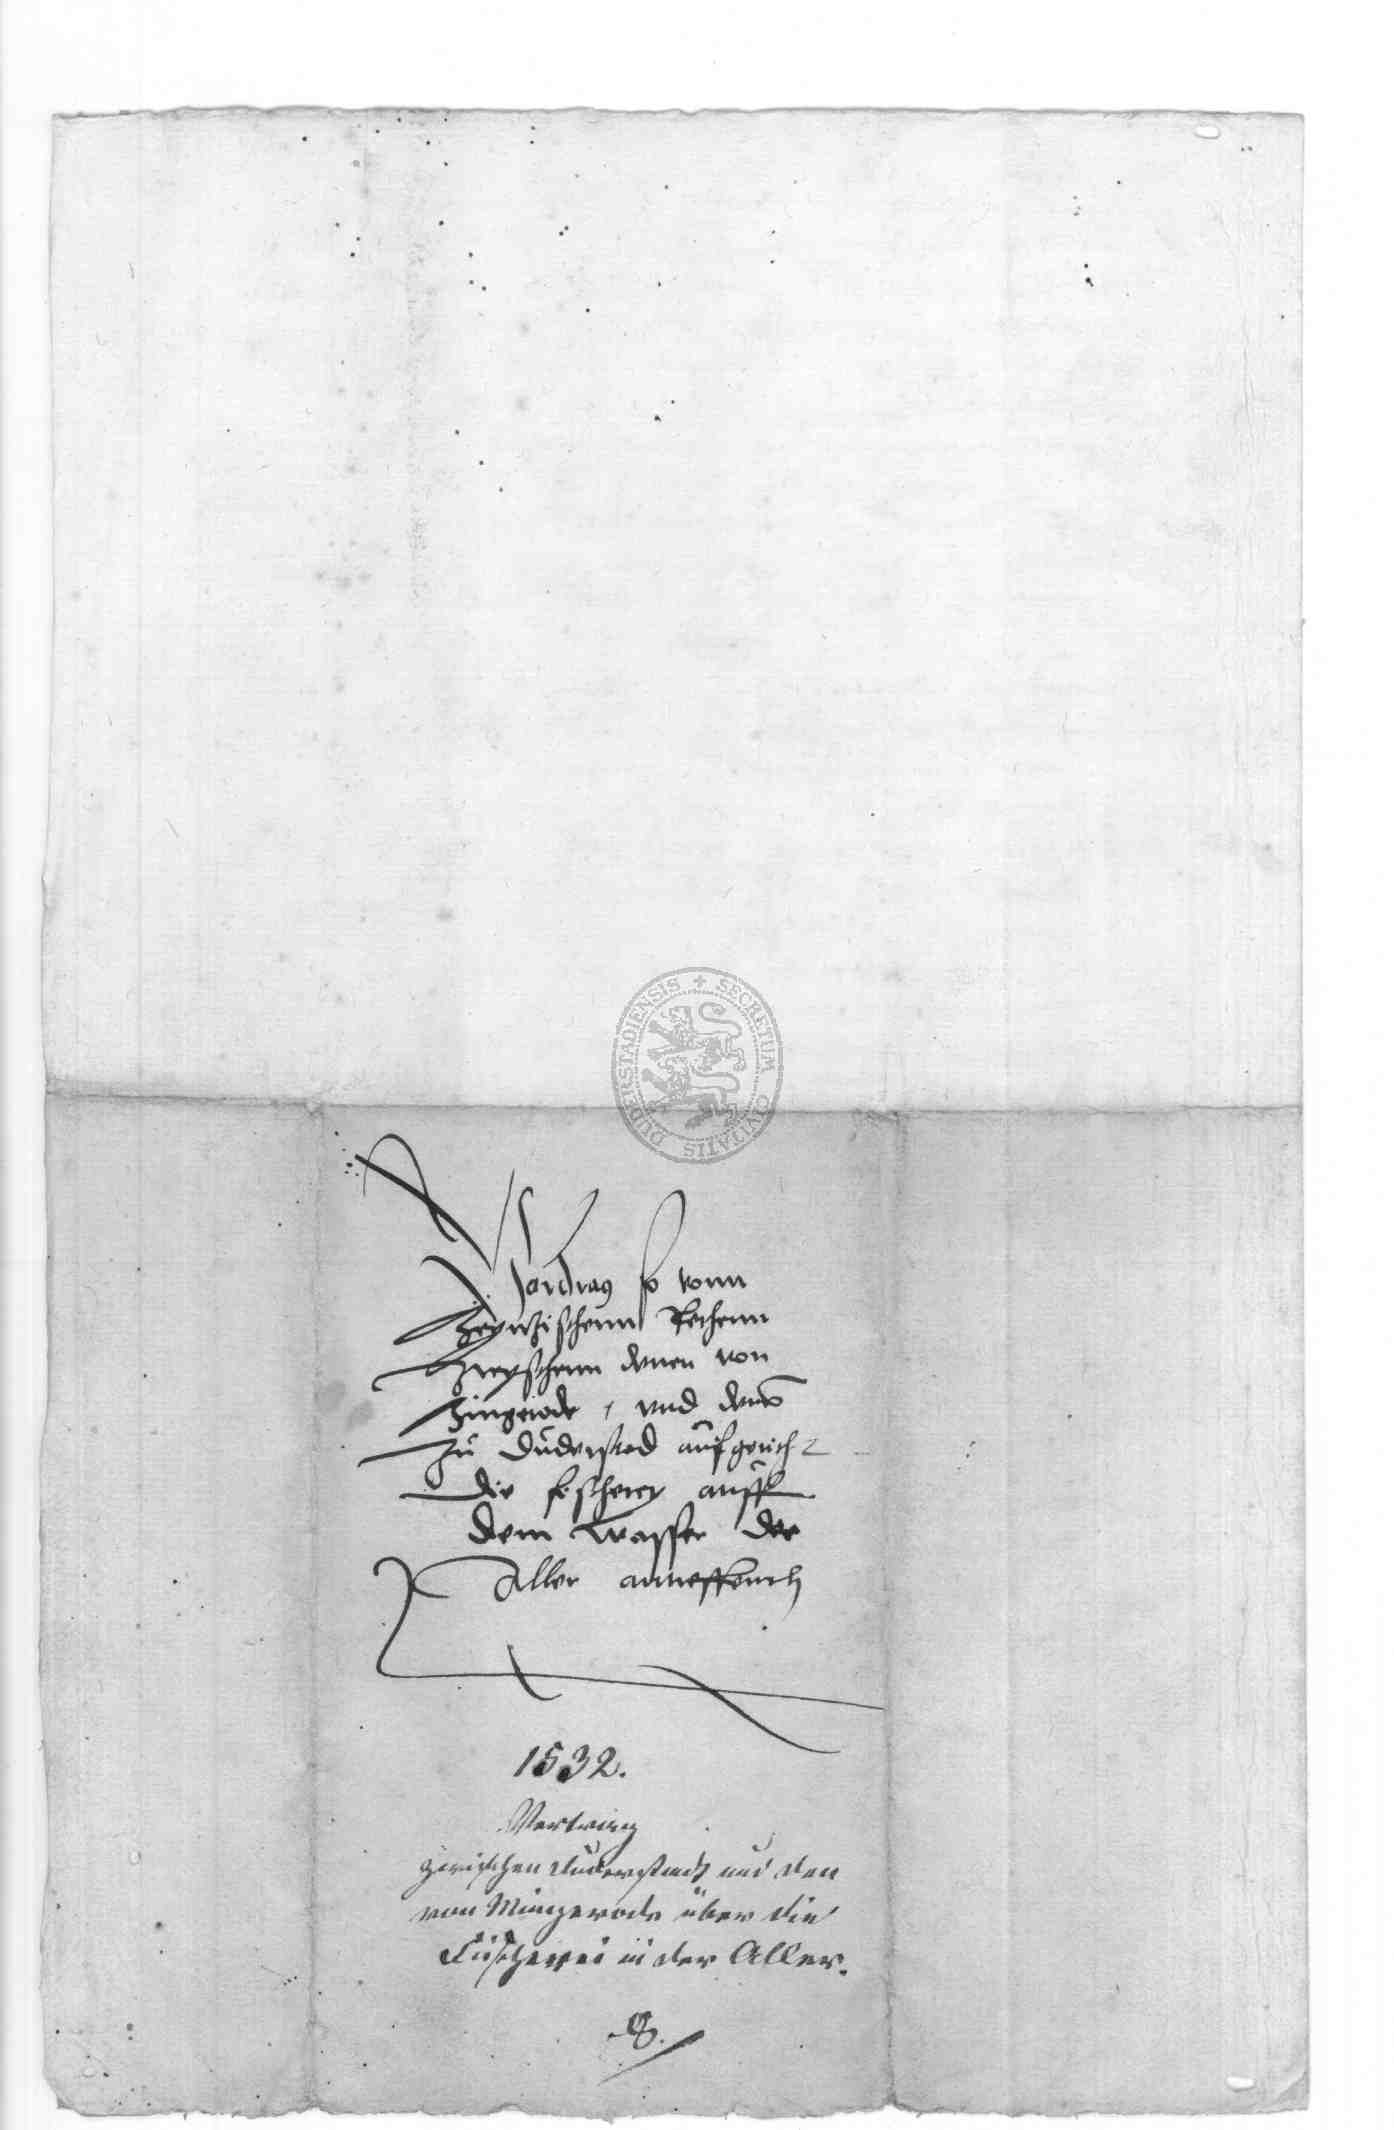 SECRETUM CIVITATIS DUDERSTADIENSIS
Vordrag so vonn
denen von
Mingerode, und denen
zu Duderstad aufgericht
die fischerey auff
dem Wasser der
Aller
1532.
Vertrag
zwischen Duderstadt und den
von Mingerode über die
Fischerei in der Aller.
8.